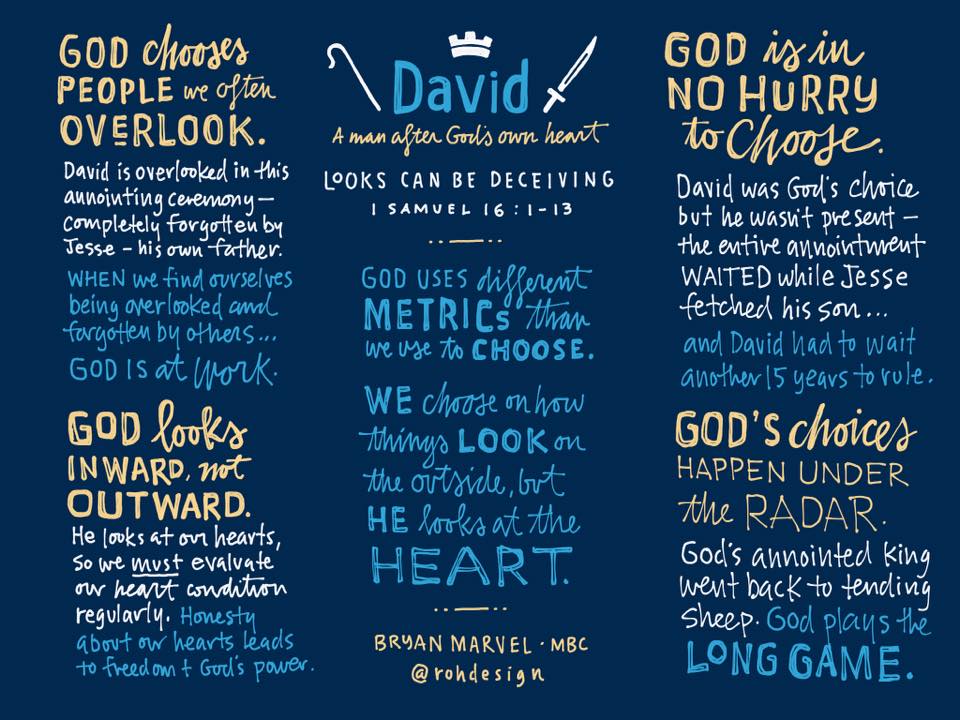 GOD chooses
PEOPLE we often
OVERLOOK.
David is overlooked in this
annointing ceremony—
completely forgotten by
Jesse - his own father.
WHEN we find ourselves
being overlooked and
forgotten by others...
GOD IS at work.
GOD looks
INWARD, not
OUTWARD.
He looks at our hearts,
so we must evaluate
our heart condition
regularly. Honesty
about our hearts leads
to freedom + God's power.
David
A man after God's own heart
LOOKS CAN BE DECEIVING
1 SAMUEL 16:1-13
GOD USES different
METRICS than
we use to CHOOSE.
WE choose on how
things LOOK on
the outside, but
HE looks at the
HEART.
BRYAN MARVEL · MBC
@rohdesign
GOD is in
NO HURRY
to Choose.
David was God's choice
but he wasn't present —
the entire annointment
WAITED while Jesse
fetched his son...
and David had to wait
another 15 years to rule.
GOD'S choices
HAPPEN UNDER
the RADAR.
God's annointed king
went back to tending
sheep. God plays the
LONG GAME.